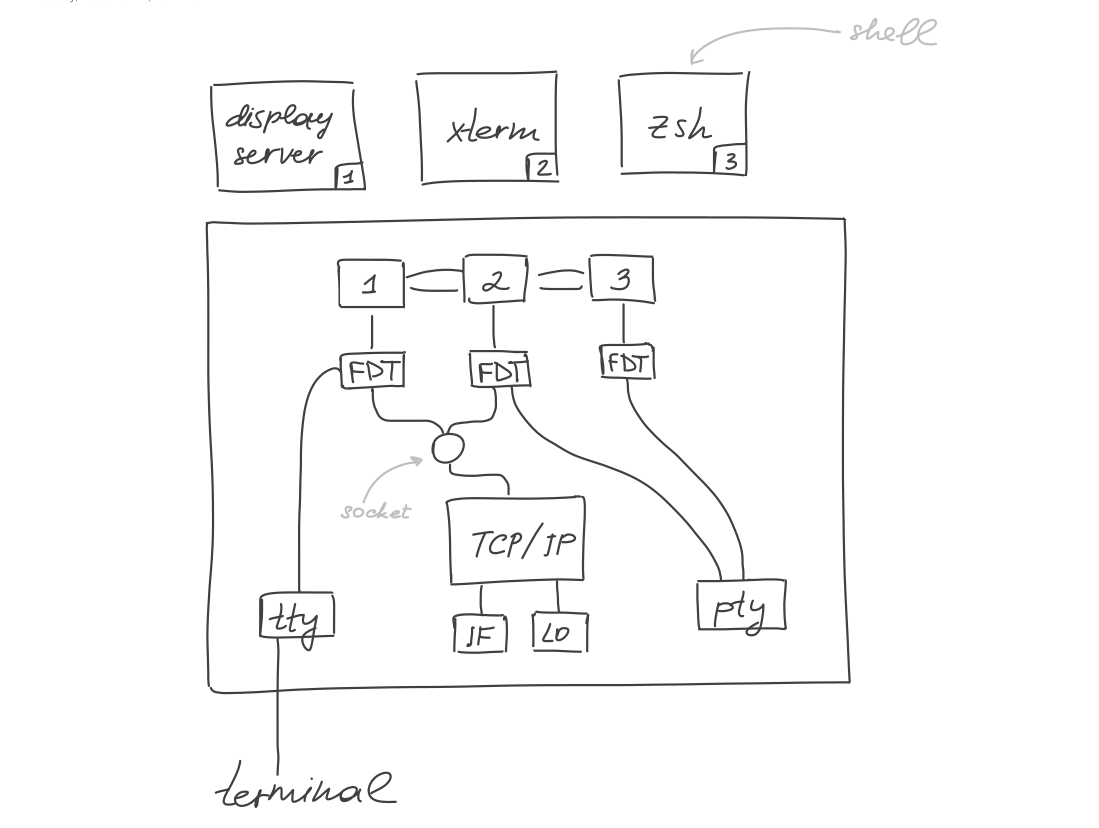 shell
display
server
1
xterm
2
zsh
3
1
2
3
FDT
FDT
FDT
socket
TCP/IP
tty
IF
LO
pty
terminal